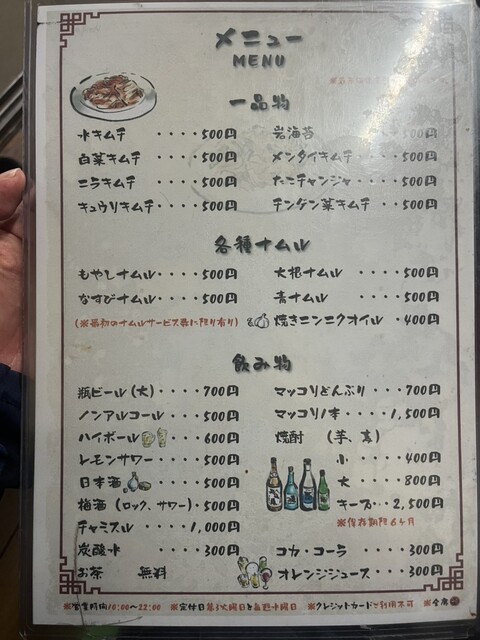 メニュー
MENU
一品物
水キムチ ・・・・500円
白菜キムチ ・・・500円
ニラキムチ ・・・500円
キュウリキムチ ・・500円
岩海苔 500円
メンタイキムチ・・・500円
たこチャンジャ・・・500円
チンゲン菜キムチ ・・500円
各種ナムル
もやしナムル・・・・500円
なすびナムル・・・・500円
大根ナムル ・・・・500円
青ナムル ・・・・500円
焼きニンニクオイル ・400円
飲み物
瓶ビール(大)・・・・700円
ノンアルコール・・・・500円
ハイボール ・・・600円
レモンサワー・・・・500円
日本酒 ・・・・500円
梅酒(ロック、サワー)・500円
チャミスル ・・・1,000円
炭酸水 ・・・・300円
お茶 無料
マッコリどんぶり ・・・700円
マッコリ1本・・・・1,500円
焼酎 (芋、麦)
小 ・・・・400円
大 ・・・・800円
キープ・・2,500円
※保存期限6ヶ月
コカ・コーラ ・・・300円
オレンジジュース・・・300円
※営業時間10:00〜22:00 ※定休日 第3火曜日と毎週木曜日 ※クレジットカードご利用不可 ※全席